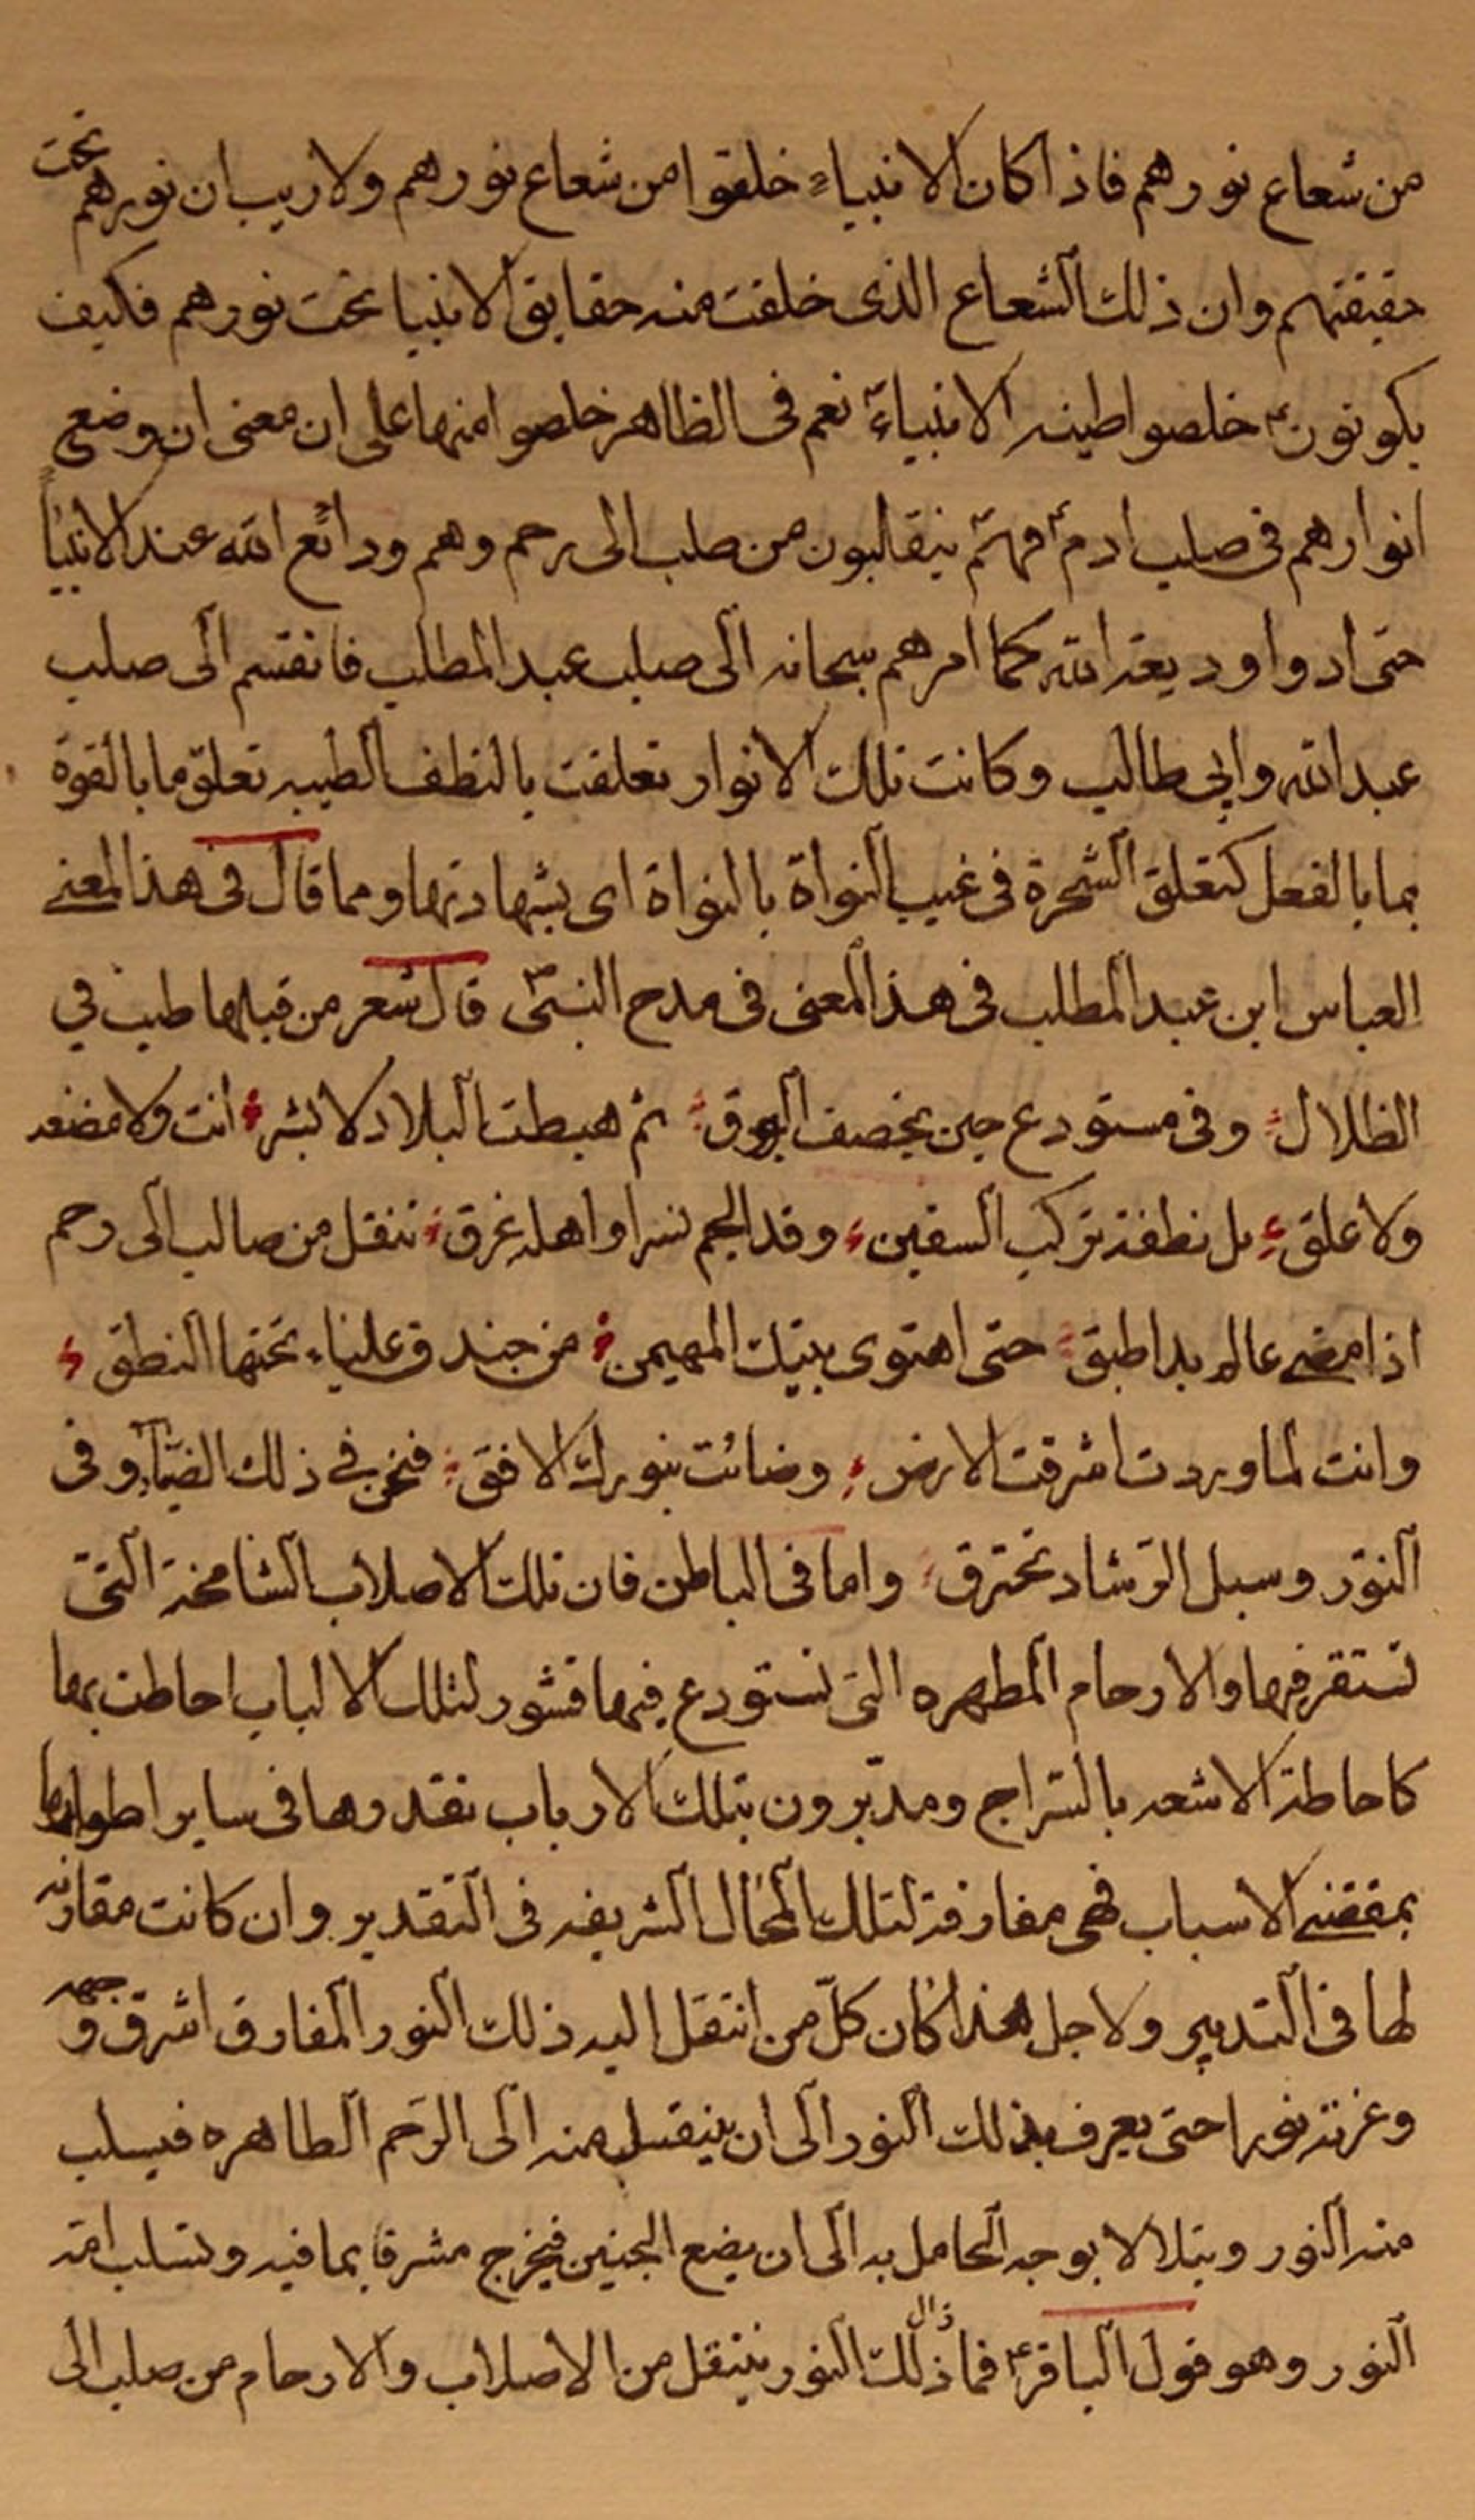 من شعاع نورهم فاذا كان الانبياء خلقوا من شعاع نورهم ولا ريب ان نورهم تحت
حقيقتهم وان ذلك الشعاع الذى خلقت منه حقايق الانبيا تحت نورهم فكيف
يكونون ع خلصوا طينه الانبياء نعم فى الظاهر خلصوا منها على ان معنى ان وضع
انوارهم فى صلب ادم ع انهم يتقالبون من صلب الى رحم وهم ودائع الله عند الانبياء
حتى ادوا وديعة الله كما امرهم سبحانه الى صلب عبد المطلب فانقسم الى صلب
عبد الله وابى طالب وكانت تلك الانوار تعلقت بالنطف الطيبه تعلق ما بالقوة
بما بالفعل كتعلق الشجرة فى غيب النواة بالنواة اى بشهادتها ومما قال فى هذا المعنى
العباس ابن عبد المطلب فى هذا المعنى فى مدح النبى ص قال شعر من قبلها طبت في
الظلال وفى مستودع حين يخصف الورق ثم هبطت البلاد لا بشر انت ولا مضغه
ولا علق بل نطفة تركب السفين وقد الجم نسرا واهله غرق تنقل من صالب الى رحم
اذا مضى عالم بدا طبق حتى احتوى بيتك المهيمن من خندق علياء تحتها النطق
وانت لما وردت اشرقت الارض وضائت بنورك الافق فنحن في ذلك الضياء وفى
النور وسبل الرشاد نخترق واما فى الباطن فان تلك الاصلاب الشامخة التى
تستقر فيها والارحام المطهره التى تستودع فيها قشور لتلك الالباب احاطت بها
كاحاطة الاشعه بالسراج ومدبرون بتلك الارباب نقدرها فى ساير اطوارها
بمقتضى الاسباب فهى مفارقة لتلك المحال الشريفه فى التقدير وان كانت مقارنه
لها فى التدبير ولاجل هذا كان كل من انتقل اليه ذلك النور المفارق اشرق وجهه و
وغرته نورا حتى يعرف بذلك النور الى ان ينتقل منه الى الرحم الطاهره فيسلب
منه النور ويتلالا بوجه الحامل به الى ان يضع الجنين فيخرج مشرقا بما فيه وتسلب امه
النور وهو قول الباقر ع فما زال ذلك النور ينتقل من الاصلاب والارحام من صلب الى